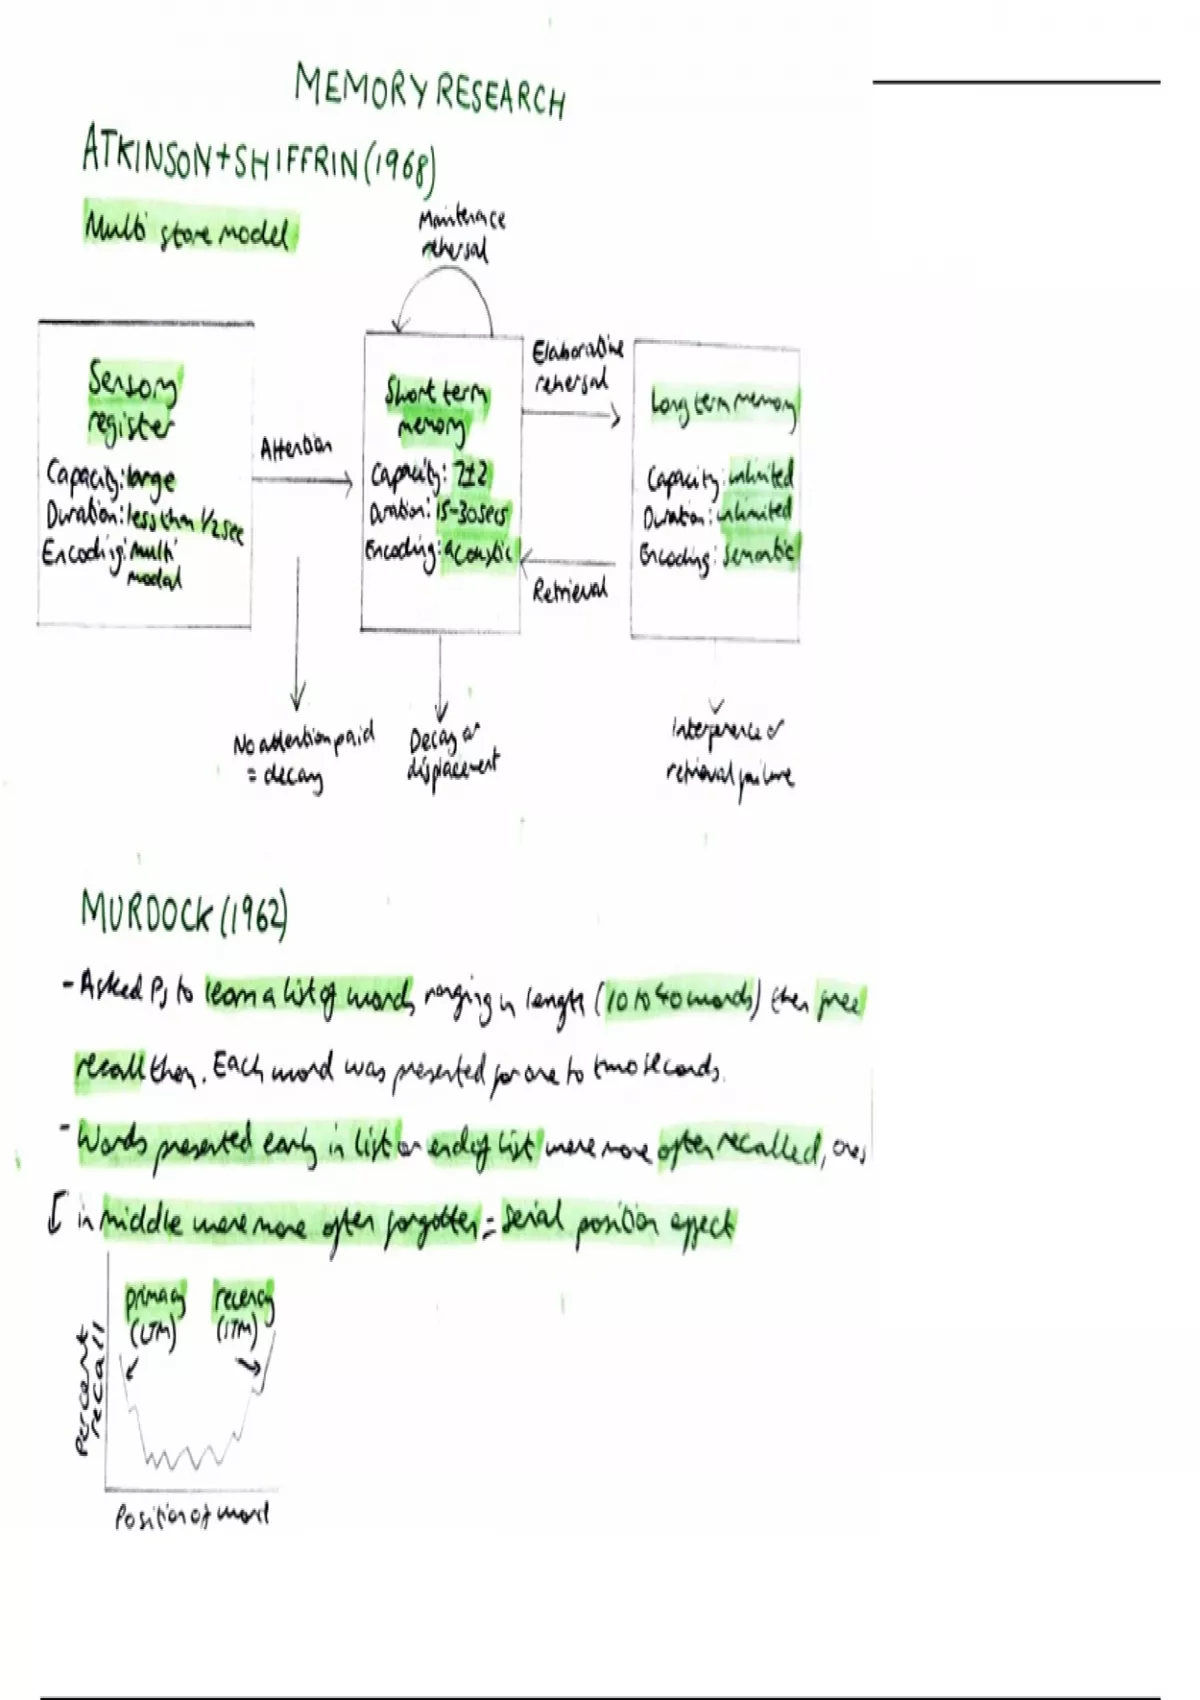 MEMORY RESEARCH
ATKINSON + SHIFFRIN (1968)
Multi store model
Maintenace
rehersal
Sensory
register
Capacity: large
Duration: less than 1/2 sec
Encoding: multi
modal
Attention
No attention paid
= decay
Short term
memory
Capacity: 7±2
Duration: 15-30secs
Encoding: acoustic
Decay or
displacement
Elaborative
rehersal
Retrieval
Long term memory
Capacity: unlimited
Duration: unlimited
Encoding: semantic
Interference or
retrieval failure
MURDOCK (1962)
- Asked Ps to learn a list of words ranging in length (10 to 40 words) then free
recall them. Each word was presented for one to two seconds.
- Words presented early in list or end of list were more often recalled, ones
in middle were more often forgotten = serial position effect
primacy
(LTM)
recency
(STM)
Percent
recall
Position of word